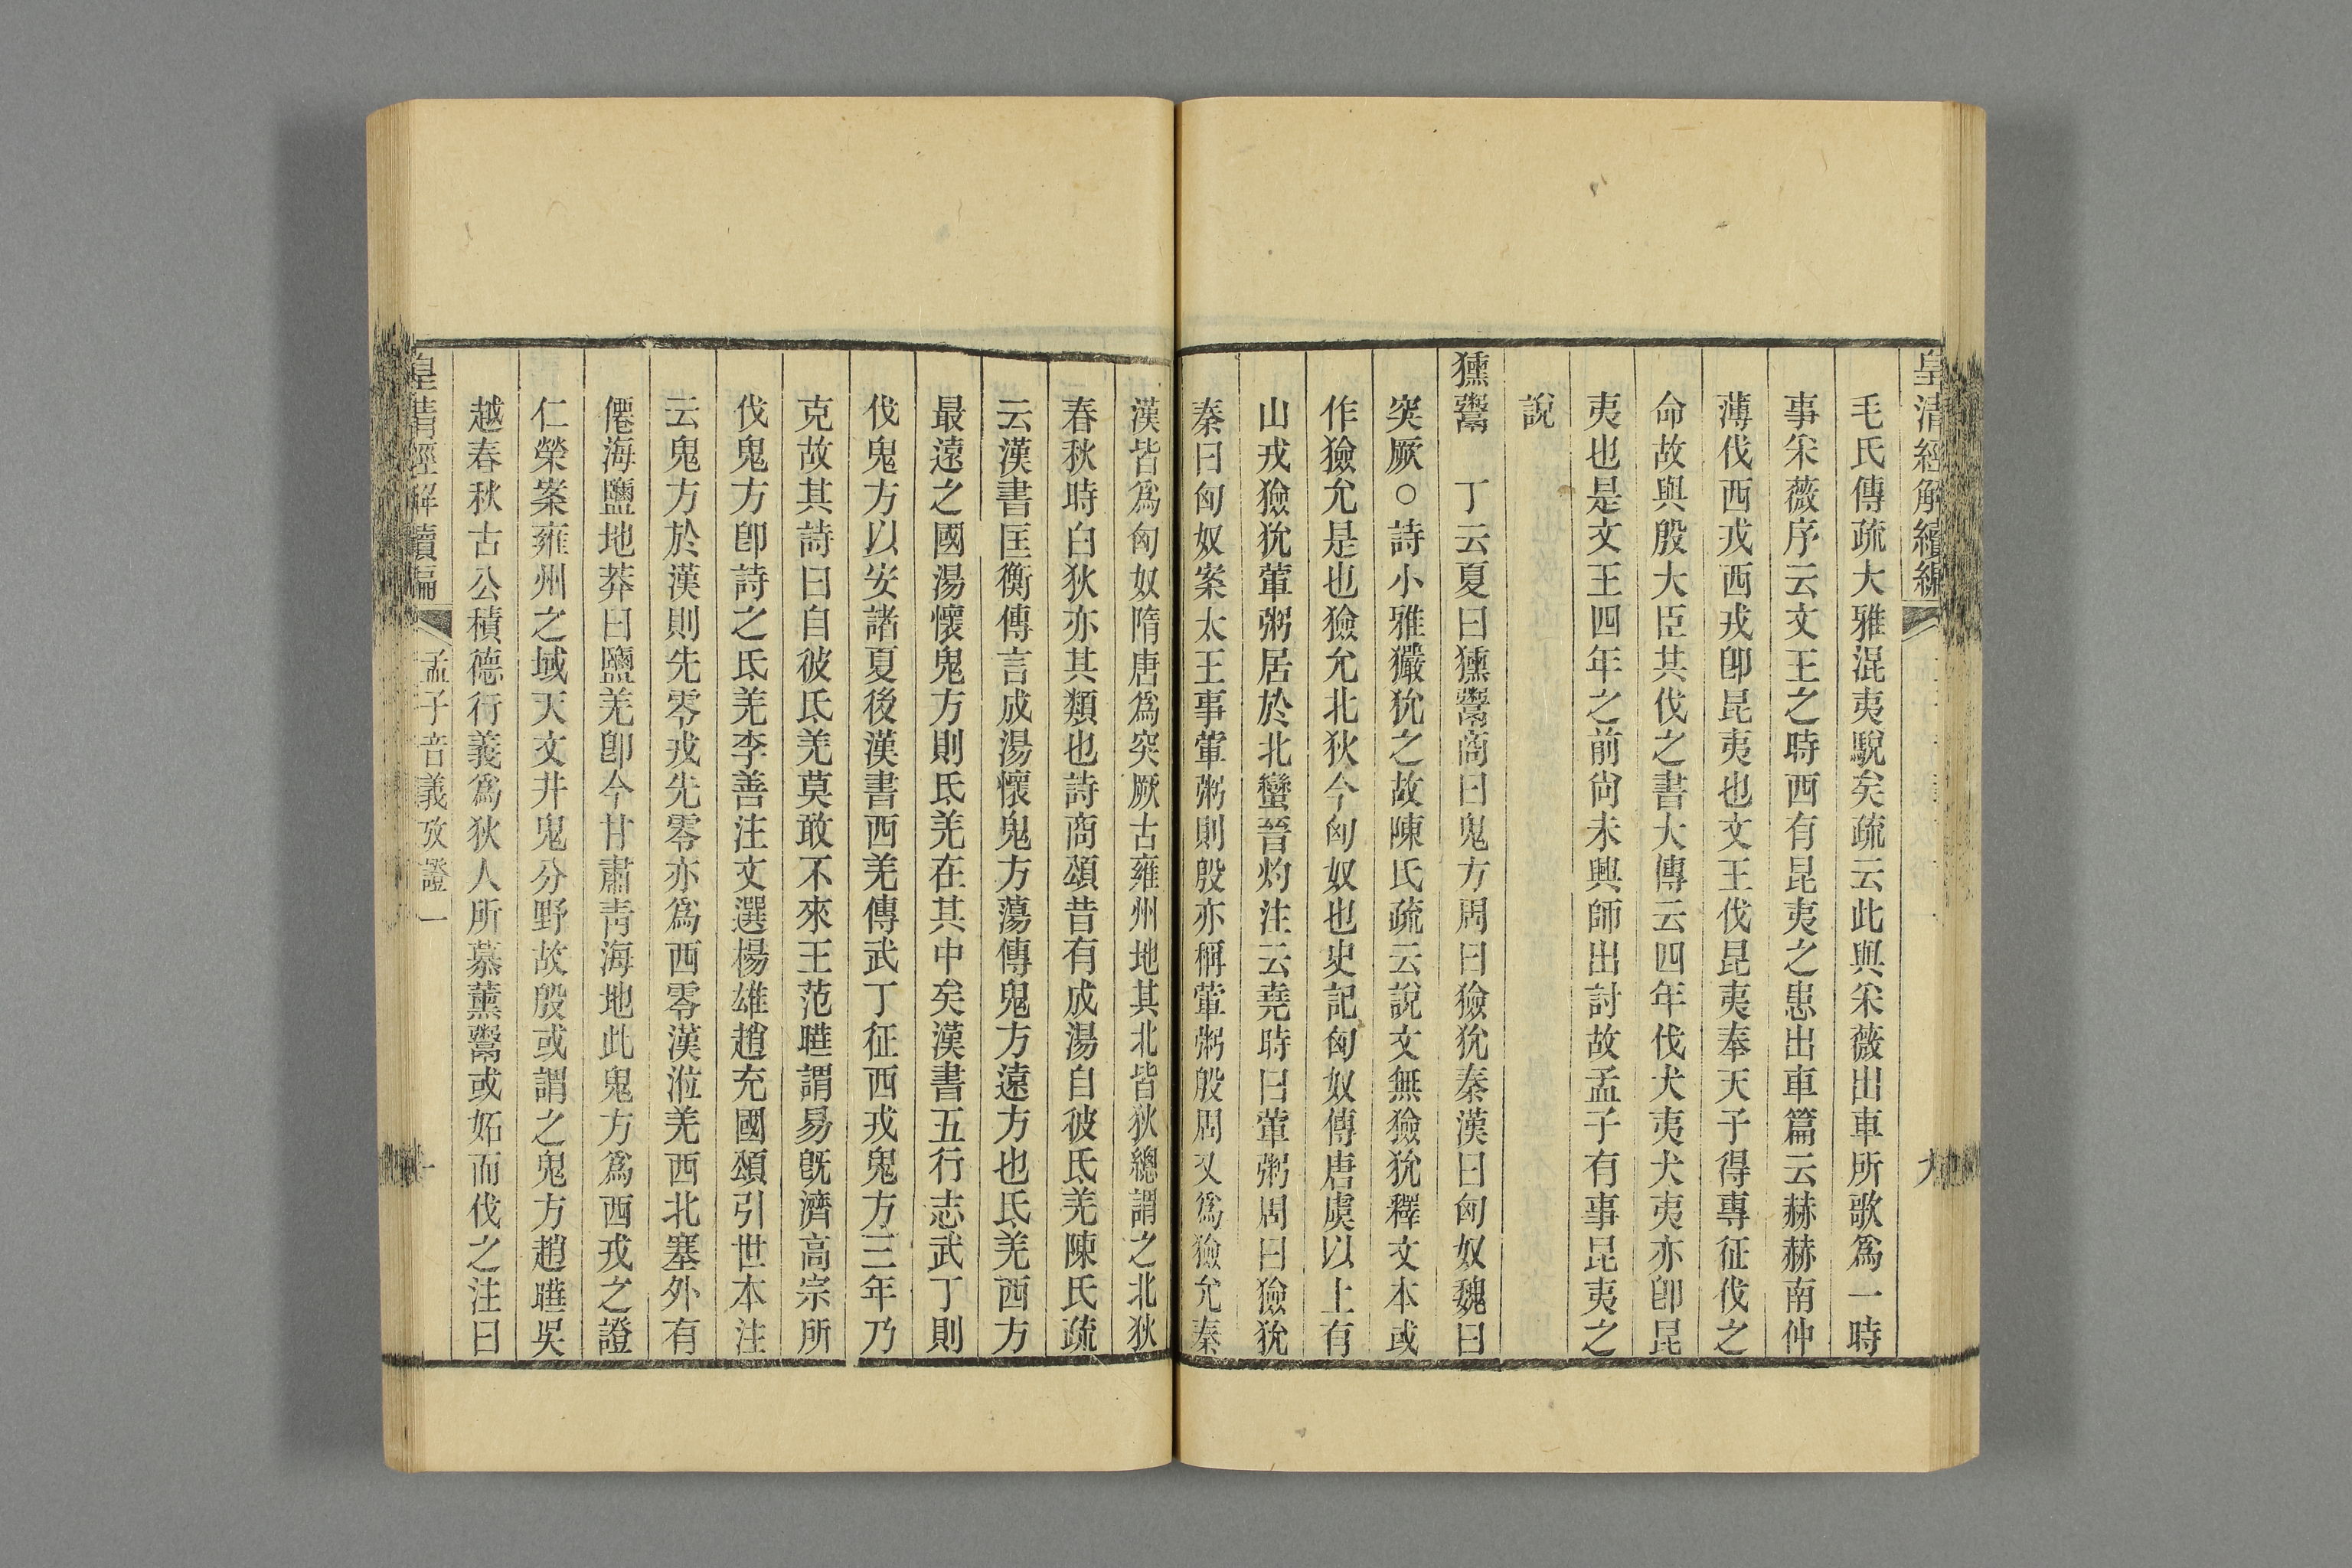 皇清經解續編 九
毛氏傳疏大雅混夷駾矣疏云此與采薇出車所歌爲一時
事采薇序云文王之時西有昆夷之患出車篇云赫赫南仲
薄伐西戎西戎卽昆夷也文王伐昆夷奉天子得專征伐之
命故與殷大臣共伐之書大傳云四年伐犬夷犬夷亦卽昆
夷也是文王四年之前尙未興師出討故孟子有事昆夷之
說
獯鬻 丁云夏曰獯鬻商曰鬼方周曰獫狁秦漢曰匈奴魏曰
突厥○詩小雅玁狁之故陳氏疏云說文無獫狁釋文本或
作獫允是也獫允北狄今匈奴也史記匈奴傳唐虞以上有
山戎獫狁葷粥居於北蠻晉灼注云堯時曰葷粥周曰獫狁
秦曰匈奴案太王事葷粥則殷亦稱葷粥殷周又爲獫允秦
漢皆爲匈奴隋唐爲突厥古雍州地其北皆狄總謂之北狄
春秋時白狄亦其類也詩商頌昔有成湯自彼氐羌陳氏疏
云漢書匡衡傳言成湯懷鬼方蕩傳鬼方遠方也氐羌西方
最遠之國湯懷鬼方則氐羌在其中矣漢書五行志武丁則
伐鬼方以安諸夏後漢書西羌傳武丁征西戎鬼方三年乃
克故其詩曰自彼氐羌莫敢不來王范曄謂易旣濟高宗所
伐鬼方卽詩之氐羌李善注文選楊雄趙充國頌引世本注
云鬼方於漢則先零戎先零亦爲西零漢涖羌西北塞外有
僊海鹽地莽曰鹽羌卽今甘肅靑海地此鬼方爲西戎之證
仁榮案雍州之域天文井鬼分野故殷或謂之鬼方趙曄吳
越春秋古公積德行義爲狄人所慕薰鬻或妬而伐之注曰
皇清經解續編 孟子音義攷證一